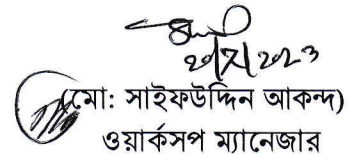 ২০/৭/২০২৩
(মো: সাইফউদ্দিন আকন্দ)
ওয়ার্কসপ ম্যানেজার